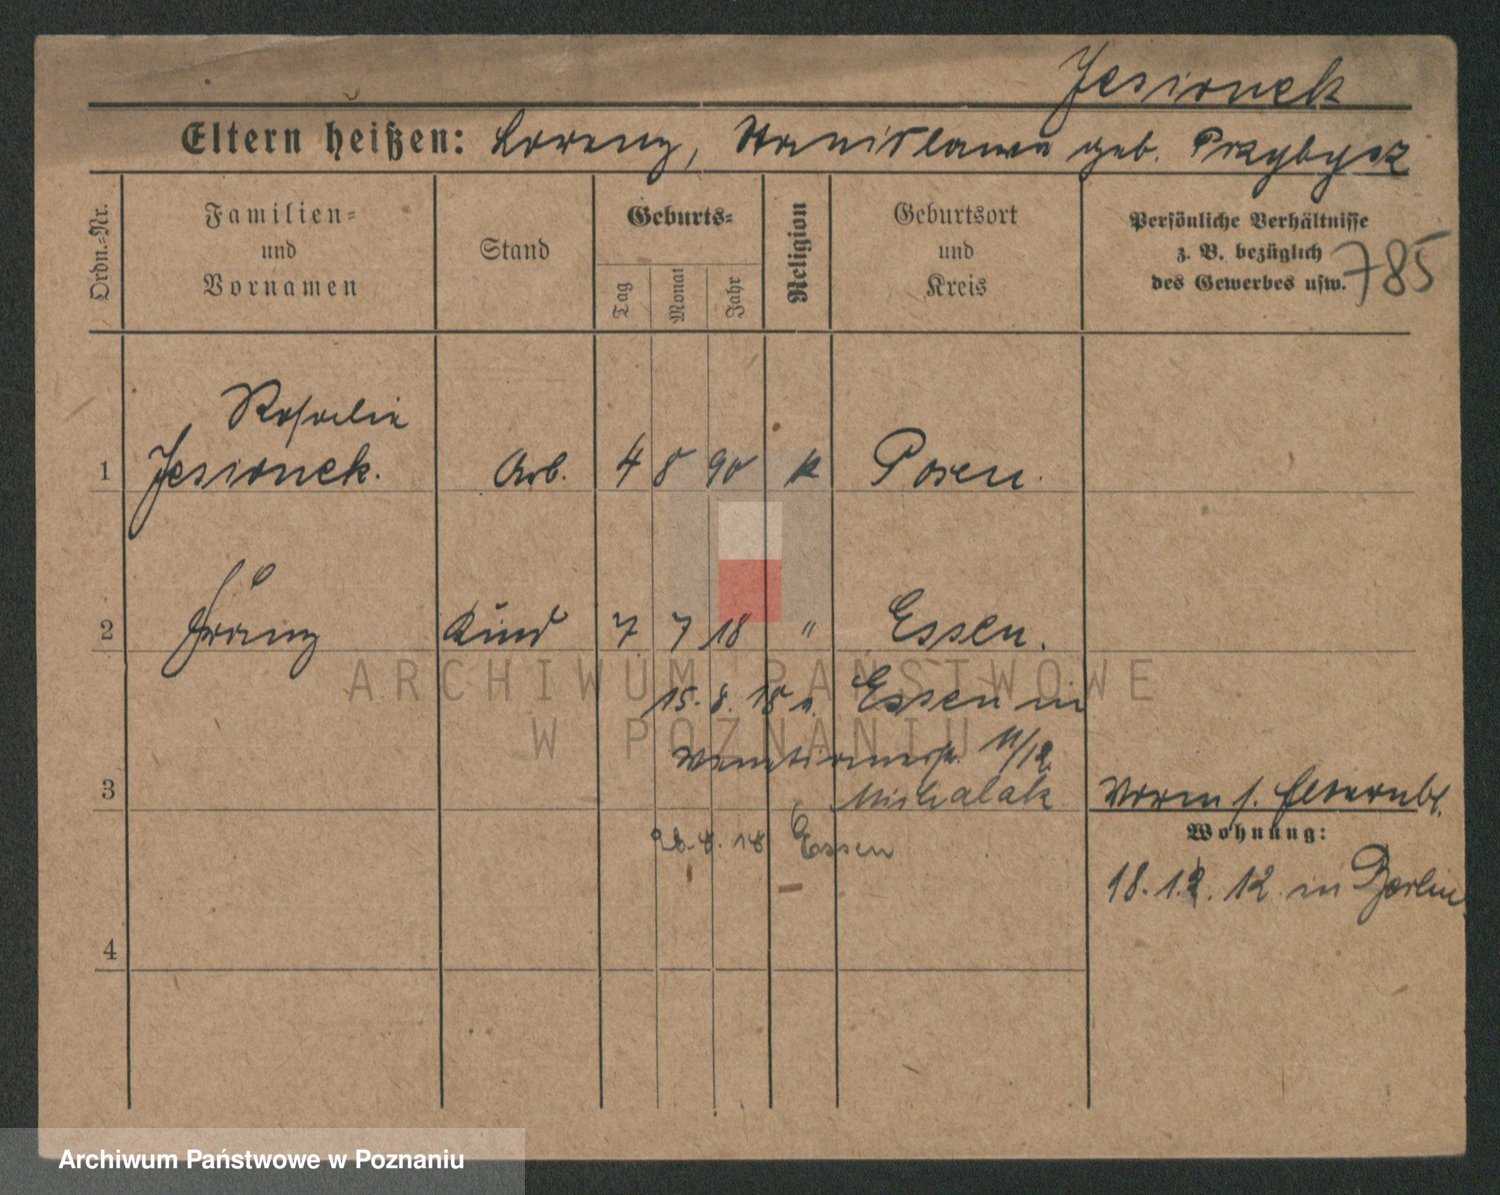 Jesionek
Eltern heißen: Lorenz, Stanislawa geb. Przybysz
Ordn.-Nr.
Familien-
und
Vornamen
Stand
Geburts-
Tag
Monat
Jahr
Religion
Geburtsort
und
Kreis
Persönliche Verhältnisse
z. B. bezüglich
des Gewerbes usw.
785
Rosalie
1 Jesionek. Arb. 4 8 90 k Posen.
2 Franz Kind 7 7 18 " Essen.
15. 8. 18 v. Essen in
11/12
Michalak
3 Vorm s. Elternbl.
Wohnung:
28. 8. 18 Essen
18. 12. 12 in Berlin
4
ARCHIWUM PAŃSTWOWE
W POZNANIU
Archiwum Państwowe w Poznaniu